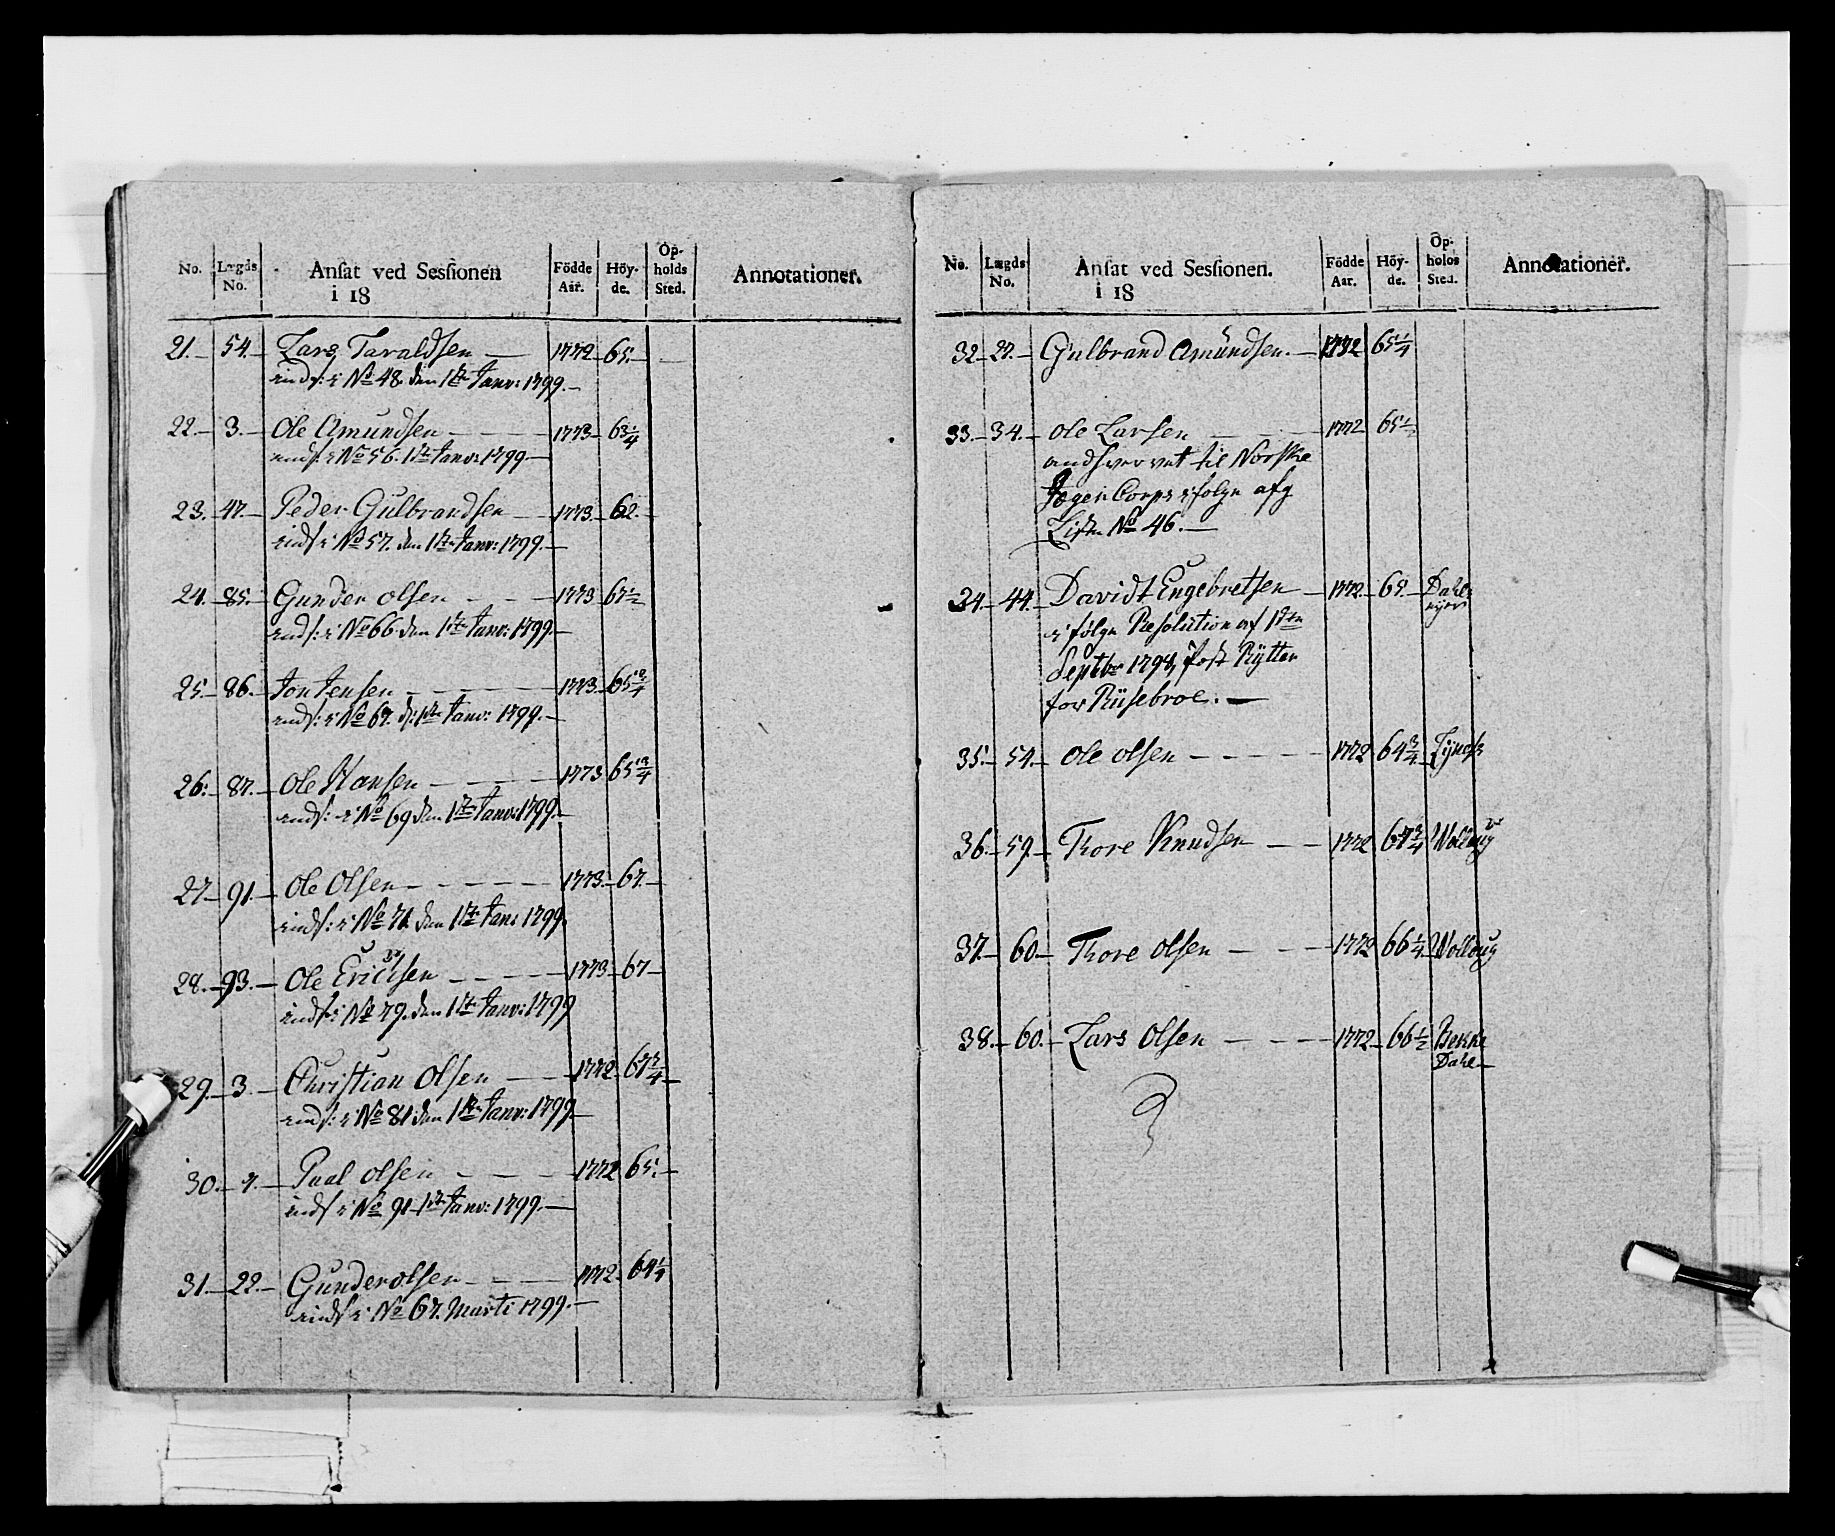 No. Lægds No. Ansat ved Sessionen i 18 Födde Aar. Höyde. Opholds Sted. Annotationer.
21. 54. Lars Taraldsen 1772 65.
inds: i No 48. den 1te Janv: 1799.
22. 3. Ole Amundsen 1773 63 1/4
inds: i No 56. 1te Janv: 1799.
23. 47. Peder Gulbrandsen 1773. 62.
inds: i No 57. den 1te Janv: 1799.
24. 85. Gunder Olsen 1773 67 1/2
inds: i No 66 den 1te Janv: 1799.
25. 86. Jon Jensen 1773. 65 3/4
inds: i No 67. d: 1te Janv: 1799.
26. 87. Ole Hansen 1773 65 3/4
inds: i No 69 den 1te Janv: 1799.
27. 91. Ole Olsen 1773. 67.
inds: i No 71 den 1te Jan: 1799.
28. 93. Ole Erichsen 1773 67
inds: i No 79. den 1te Janv: 1799
29. 3. Christian Olsen 1772 67 3/4
inds: i No 81 den 1te Janv: 1799
30. 7. Paal Olsen 1772 65.
inds i No 91 1te Janv: 1799.
31. 22. Gunder Olsen 1772. 64 1/4
inds i No 67. Marti 1799.
No. Lægds No. Ansat ved Sessionen. i 18 Födde Aar. Höyde. Opholds Sted. Annotationer.
32. 27. Gulbrand Amundsen. 1772 65 1/4
33. 34. Ole Larsen 1772 65 1/2
andhvervet til Norske
Jæger Corps ifølge afg
Liste No 46.
34. 44. Davidt Engebretsen 1772. 65.
ifølge Resolution af 1ten
Septbr 1794, Post Rytter
for Riisebroe.
35. 54. Ole Olsen 1772 64 3/4
36. 59. Thore Knudsen 1772 67 3/4 Wolloug
37. 60. Thore Olsen 1772 66 1/4 Wolloug
38. 60. Lars Olsen 1772 66 1/2 Bekke
Dahl